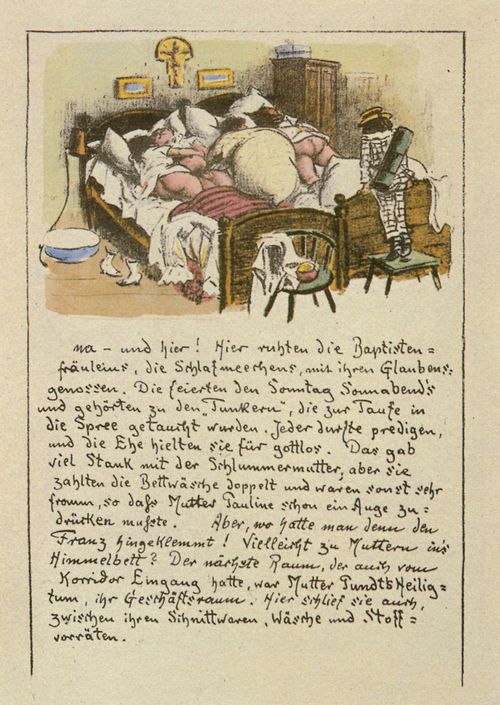 na – und hier! Hier ruhten die Baptisten=
fräuleins, die Schlafmeechens, mit ihren Glaubens=
genossen. Die feierten den Sonntag Sonnabends
und gehörten zu den „Tunkern", die zur Taufe in
die Spree getaucht wurden. Jeder durfte predigen,
und die Ehe hielten sie für gottlos. Das gab
viel Stank mit der Schlummermutter, aber sie
zahlten die Bettwäsche doppelt und waren sonst sehr
fromm, so daß Mutter Pauline schon ein Auge zu=
drücken mußte. Aber, wo hatte man denn den
Franz hingeklemmt! Vielleicht zu Muttern ins
Himmelbett? Der nächste Raum, der auch vom
Korridor Eingang hatte, war Mutter Tundts Heilig=
tum, ihr Geschäftsraum. Hier schlief sie auch,
zwischen ihren Schnittwaren, Wäsche und Stoff=
vorräten.